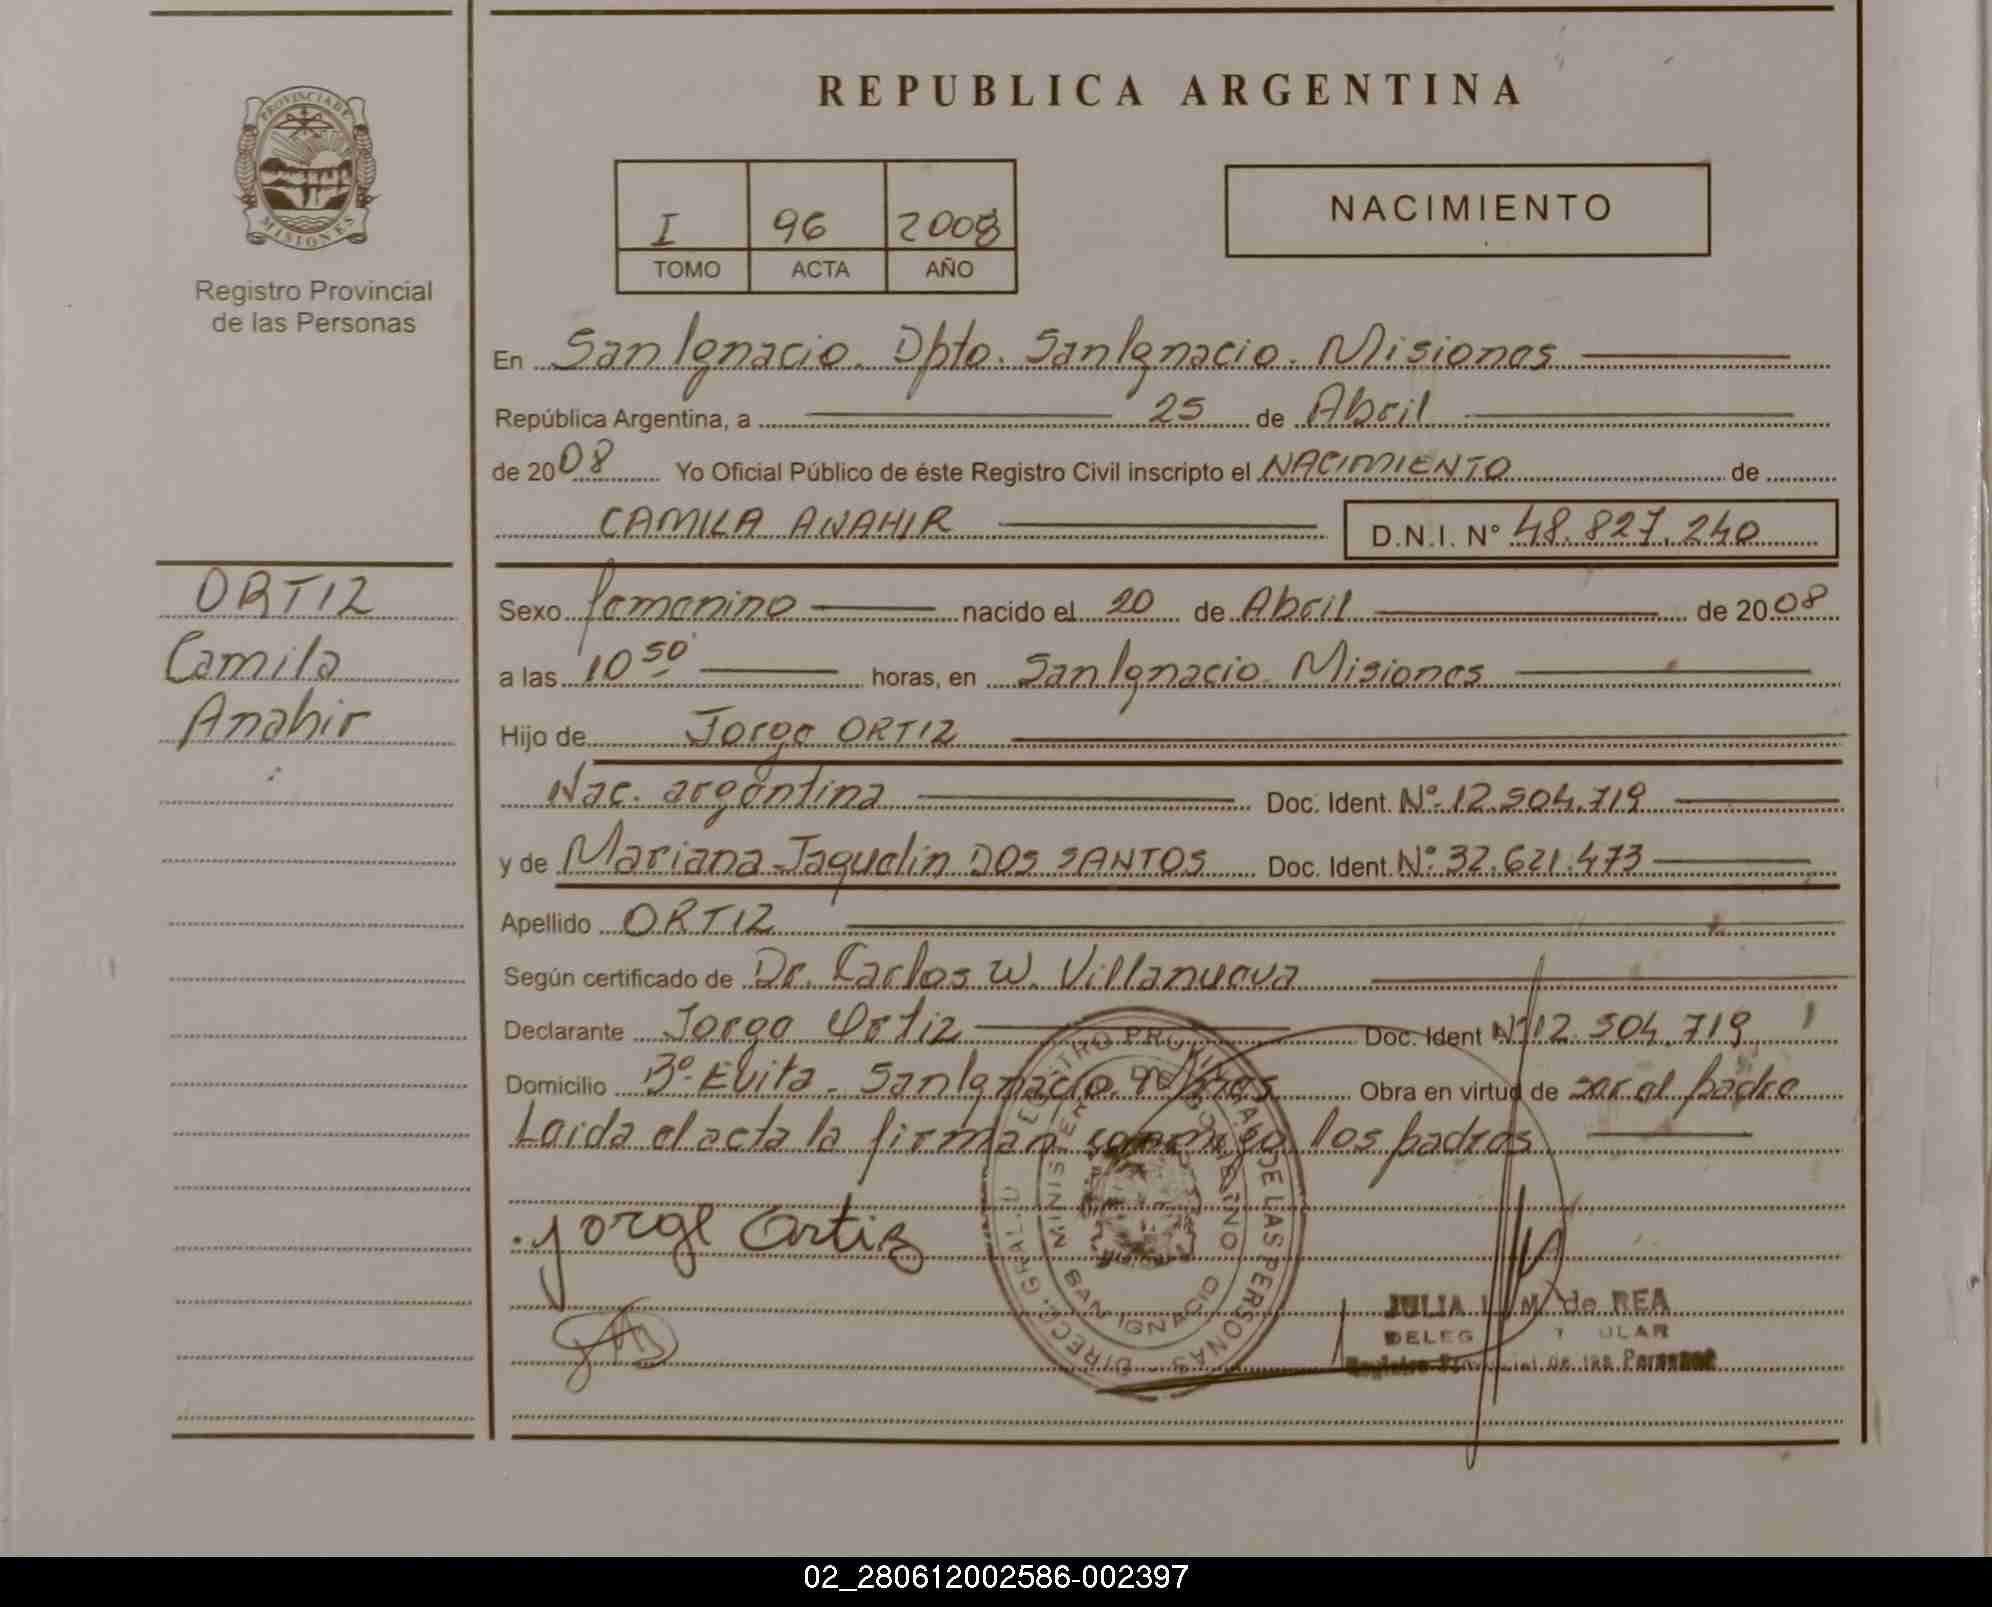 REPUBLICA ARGENTINA
PROVINCIA DE
MISIONES
Registro Provincial
de las Personas
I 96 2008
TOMO ACTA AÑO
NACIMIENTO
En San Ignacio. Dpto. San Ignacio. Misiones
República Argentina, a 25 de Abril
de 2008 Yo Oficial Público de éste Registro Civil inscripto el NACIMIENTO de
CAMILA ANAHIR D.N.I. N° 48.827.240
ORTIZ
Camila
Anahir
Sexo femenino nacido el 20 de Abril de 2008
a las 10 50 horas, en San Ignacio Misiones
Hijo de Jorge ORTIZ
Nac. argentina Doc. Ident. Nº 12.504.719
y de Mariana Jaquelin DOS SANTOS Doc. Ident. Nº 32.621.473
Apellido ORTIZ
Según certificado de Dr. Carlos W. Villanueva
Declarante Jorge Ortiz Doc. Ident Nº 12.504.719
Domicilio Bº Evita. San Ignacio. Obra en virtud de ser el padre
Leida el acta la firman conmigo los padres
Jorge Ortiz
DIRECC. GRAL. DEL REGISTRO PROVINCIAL DE LAS PERSONAS
MINISTERIO DE GOBIERNO
SAN IGNACIO
JULIA M. de REA
Registro Provincial de las Personas
02_280612002586-002397